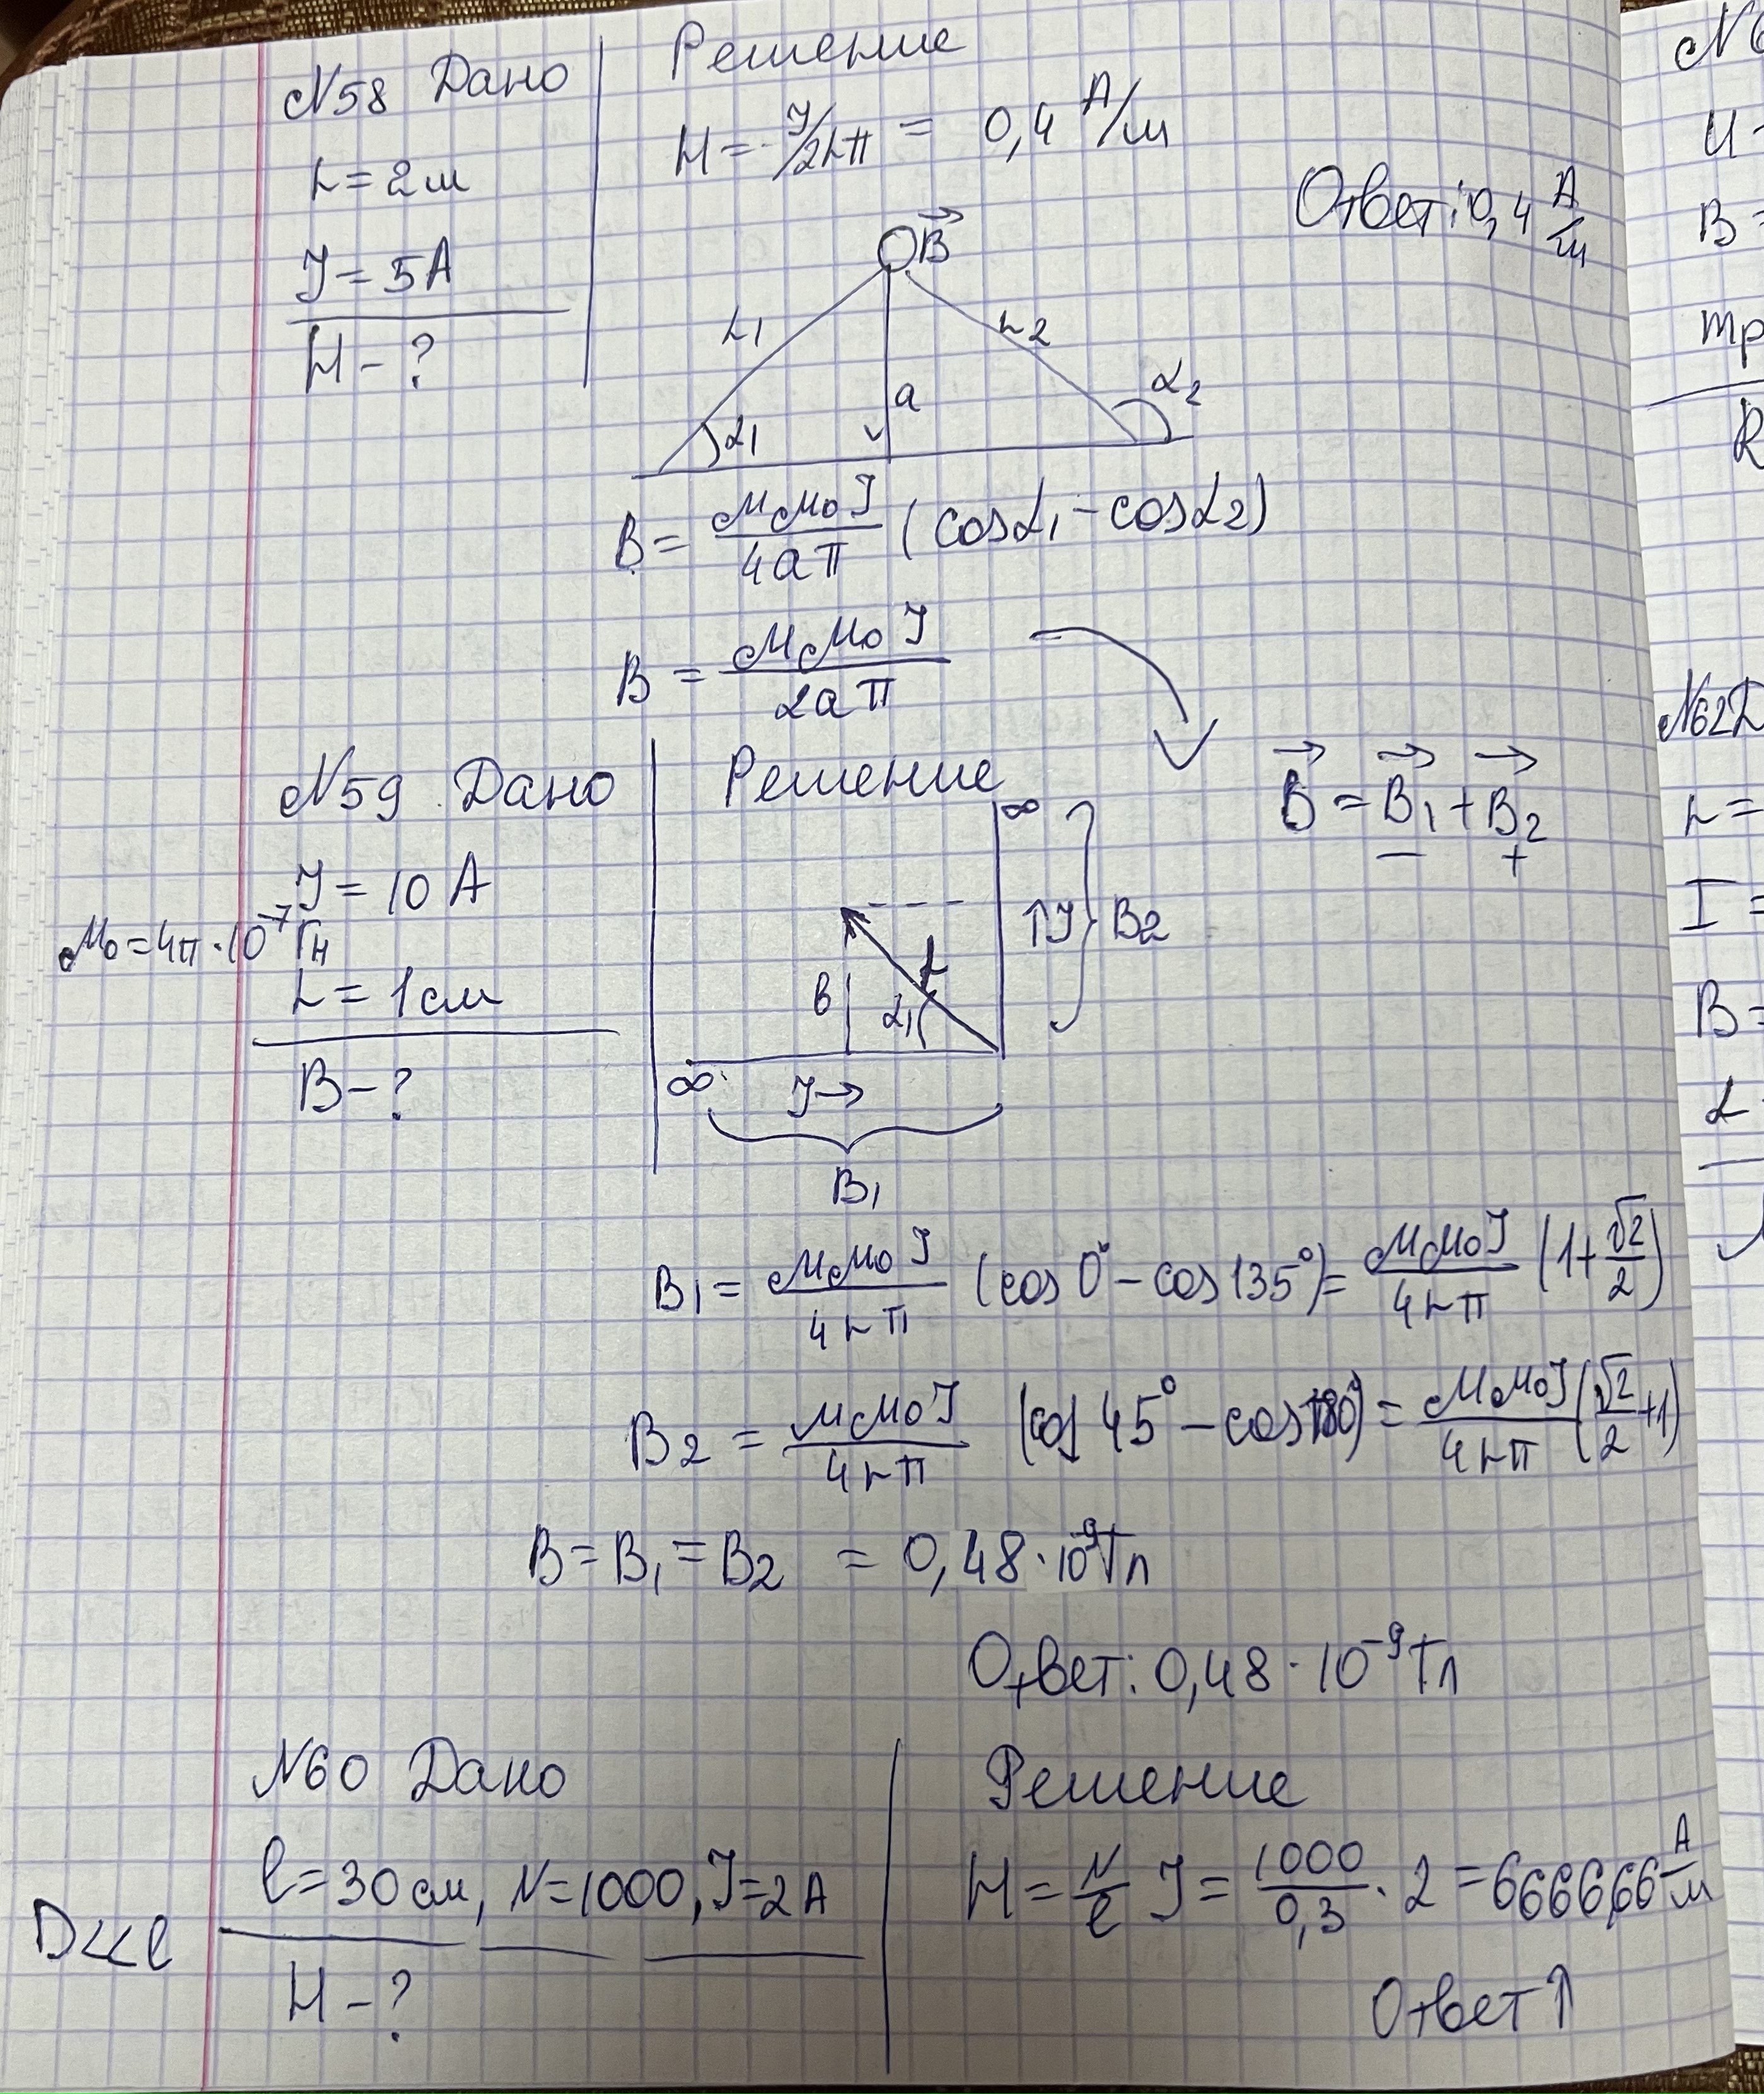 N58 Дано
L = 2м
J = 5A
H - ?
Решение
H = J/2Lπ = 0,4 A/м
Ответ: 0,4 A/м
B
L1
L2
a
α1
α2
B = μμ0J/4aπ (cosα1 - cosα2)
B = μμ0J/2aπ
N59 Дано
J = 10 A
μ0 = 4π·10^-7 Гн
L = 1см
B - ?
Решение
B = B1 + B2
- +
∞
↑J B2
L
в α1
∞
J→
B1
B1 = μμ0J/4Lπ (cos 0° - cos 135°) = μμ0J/4Lπ (1 + √2/2)
B2 = μμ0J/4Lπ (cos 45° - cos 180°) = μμ0J/4Lπ (√2/2 + 1)
B = B1 = B2 = 0,48·10^-9 Тл
Ответ: 0,48·10^-9 Тл
N60 Дано
l = 30 см, N = 1000, J = 2 A
D<<l
H - ?
Решение
H = N/l J = 1000/0,3 · 2 = 6666,66 A/м
Ответ ↑
U =
B =
R
N62 Д
L =
I =
B =
α